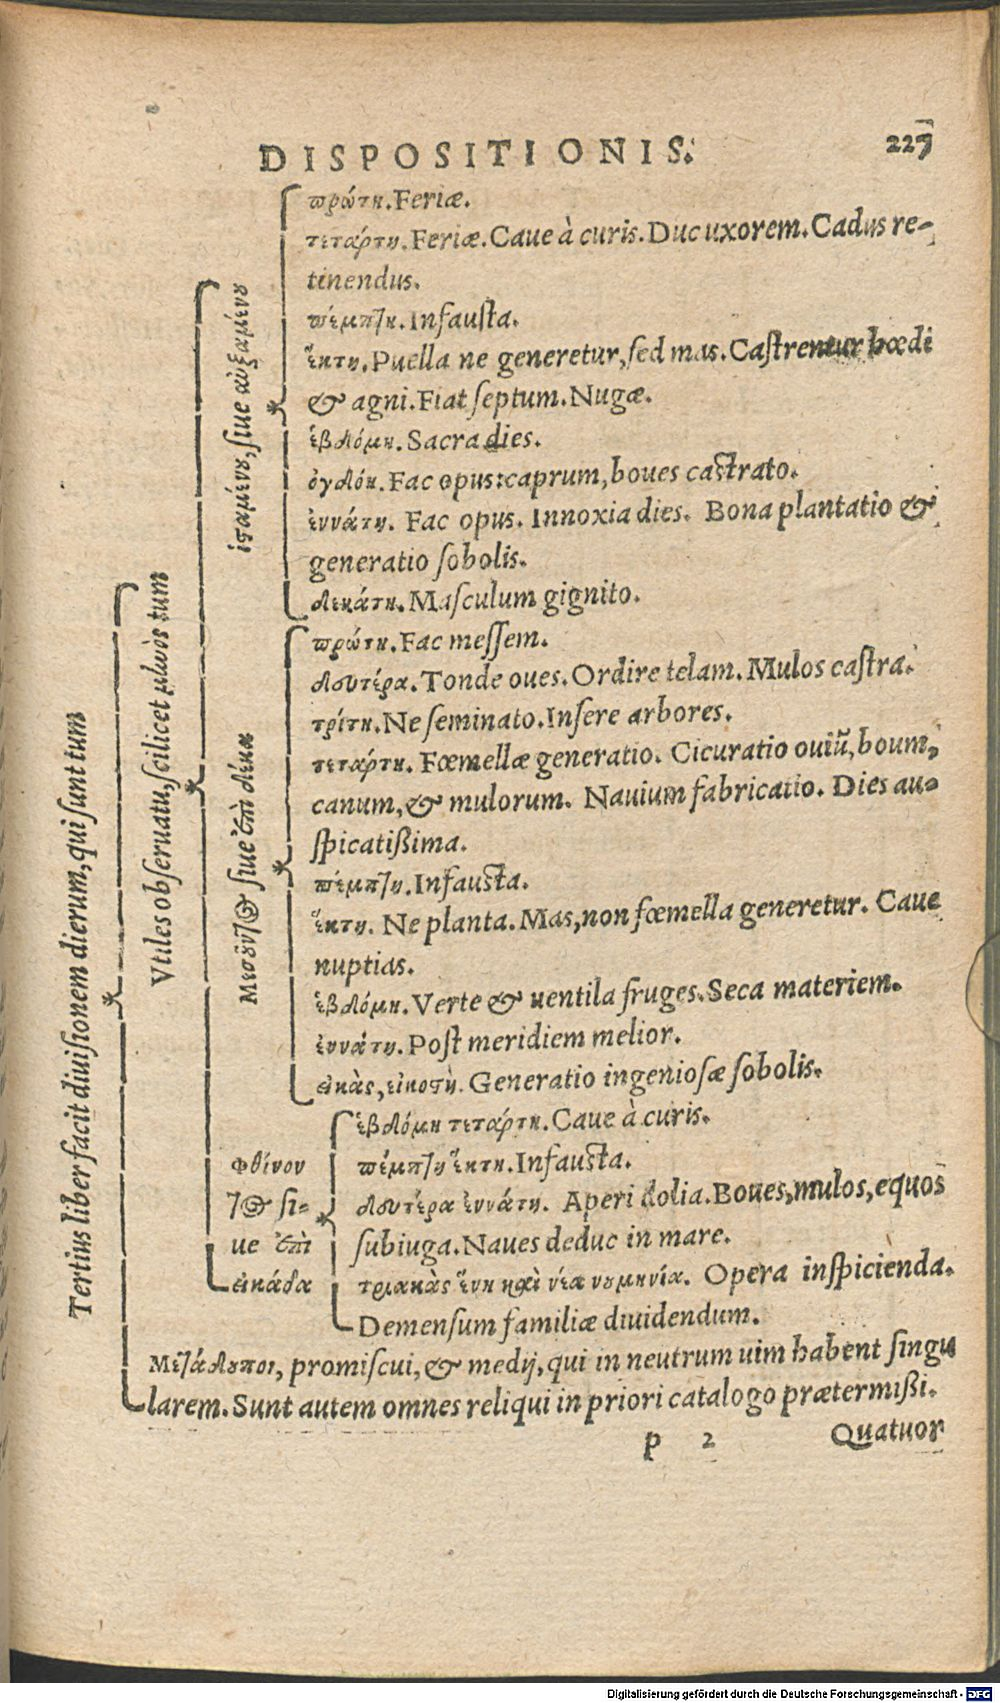 DISPOSITIONIS.
227
Tertius liber facit diuisionem dierum, qui sunt tum
Vtiles obseruatu, scilicet μluὸς tum
ἱσταμένȣ, siue αὐξαμένȣ
πρώτη. Feriæ.
τετάρτη. Feriæ. Caue à curis. Duc uxorem. Cadus re-
tinendus.
πέμπτη. Infausta.
ἕκτη. Puella ne generetur, sed mas. Castrentur hœdi
& agni. Fiat septum. Nugæ.
ἑβδόμη. Sacra dies.
ὀγδόη. Fac opus: caprum, boues castrato.
ἐννάτη. Fac opus. Innoxia dies. Bona plantatio &
generatio sobolis.
δεκάτη. Masculum gignito.
Μεσοῦντος siue ἐπὶ δέκα
πρώτη. Fac messem.
δευτέρα. Tonde oues. Ordire telam. Mulos castra.
τρίτη. Ne seminato. Insere arbores.
τετάρτη. Fœmellæ generatio. Cicuratio ouiũ, boum,
canum, & mulorum. Nauium fabricatio. Dies au-
spicatißima.
πέμπτη. Infausta.
ἕκτη. Ne planta. Mas, non fœmella generetur. Caue
nuptias.
ἑβδόμη. Verte & uentila fruges. Seca materiem.
ἐννάτη. Post meridiem melior.
εἰκὰς, εἰκοστὴ. Generatio ingeniosæ sobolis.
Φθίνον
τος si-
ue ἐπὶ
εἰκάδα
ἑβδόμη τετάρτη. Caue à curis.
πέμπτη ἕκτη. Infausta.
δευτέρα ἐννάτη. Aperi dolia. Boues, mulos, equos
subiuga. Naues deduc in mare.
τριακὰς ἕνη καὶ νέα νȣμηνία. Opera inspicienda.
Demensum familiæ diuidendum.
Μετάδȣποι, promiscui, & medij, qui in neutrum uim habent singu
larem. Sunt autem omnes reliqui in priori catalogo prætermißi.
p 2
Quatuor
Digitalisierung gefördert durch die Deutsche Forschungsgemeinschaft - DFG